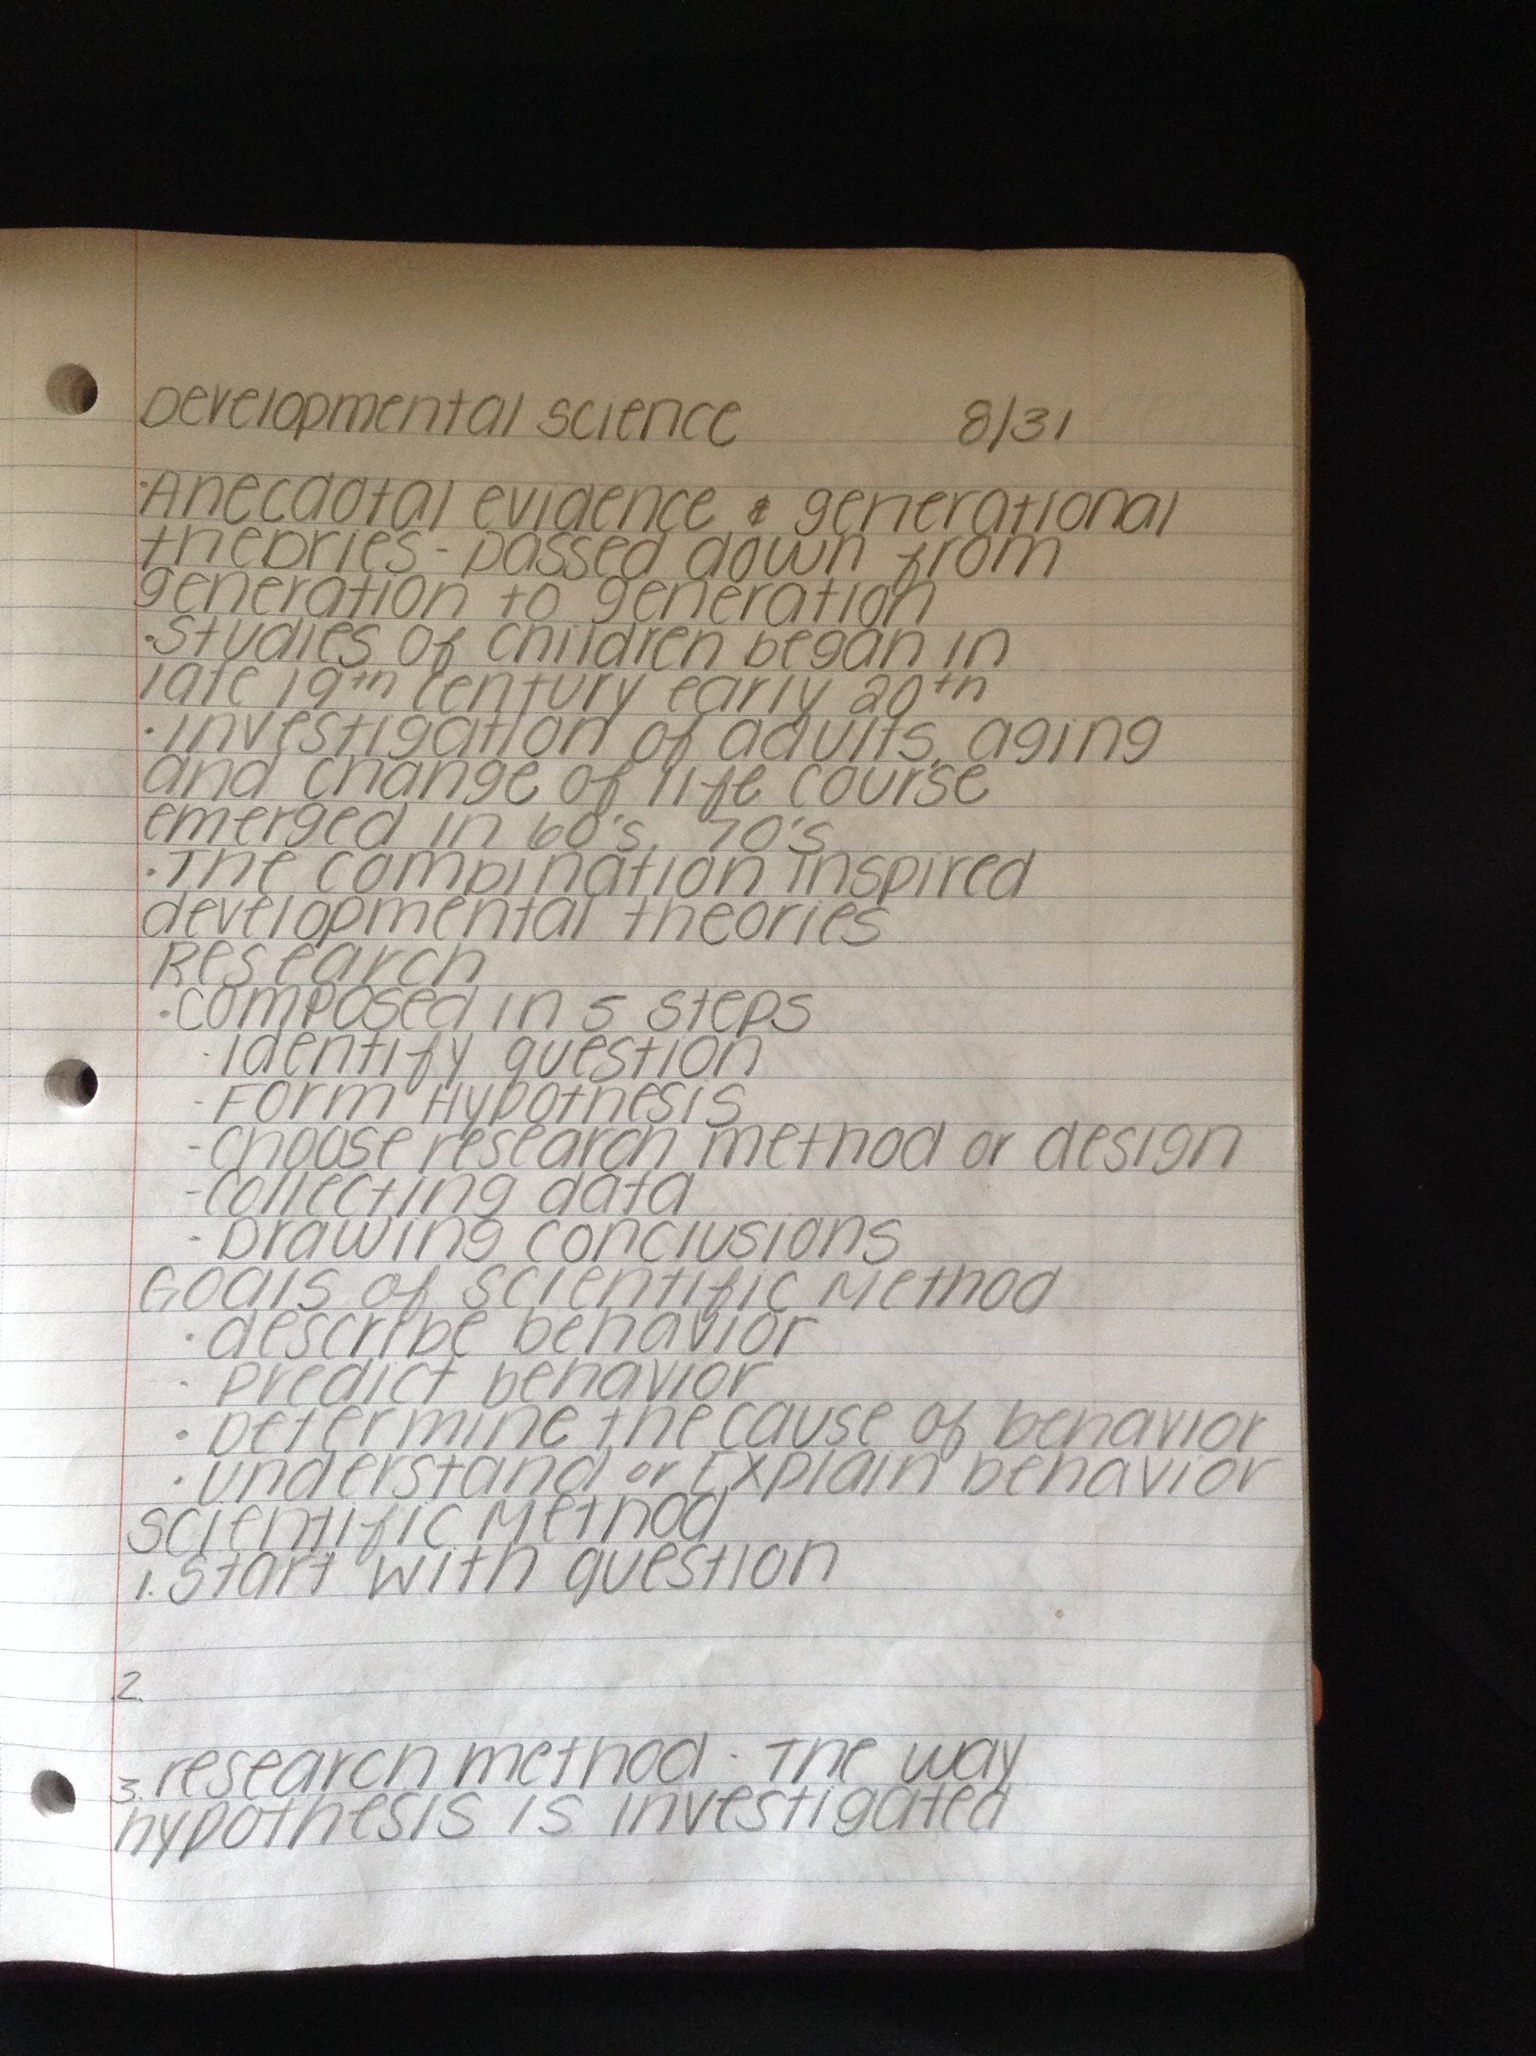 Developmental Science 8/31
·Anecdotal evidence & generational
theories - passed down from
generation to generation
·Studies of children began in
late 19th century early 20th
·Investigation of adults, aging
and change of life course
emerged in 60's, 70's
·The combination inspired
developmental theories
Research
·composed in 5 steps
- Identify question
- Form Hypothesis
- Choose research method or design
- Collecting data
- Drawing conclusions
Goals of Scientific Method
· describe behavior
· Predict behavior
· Determine the cause of behavior
· Understand or Explain behavior
Scientific Method
1. Start with question
2.
3. research method - The way
hypothesis is investigated